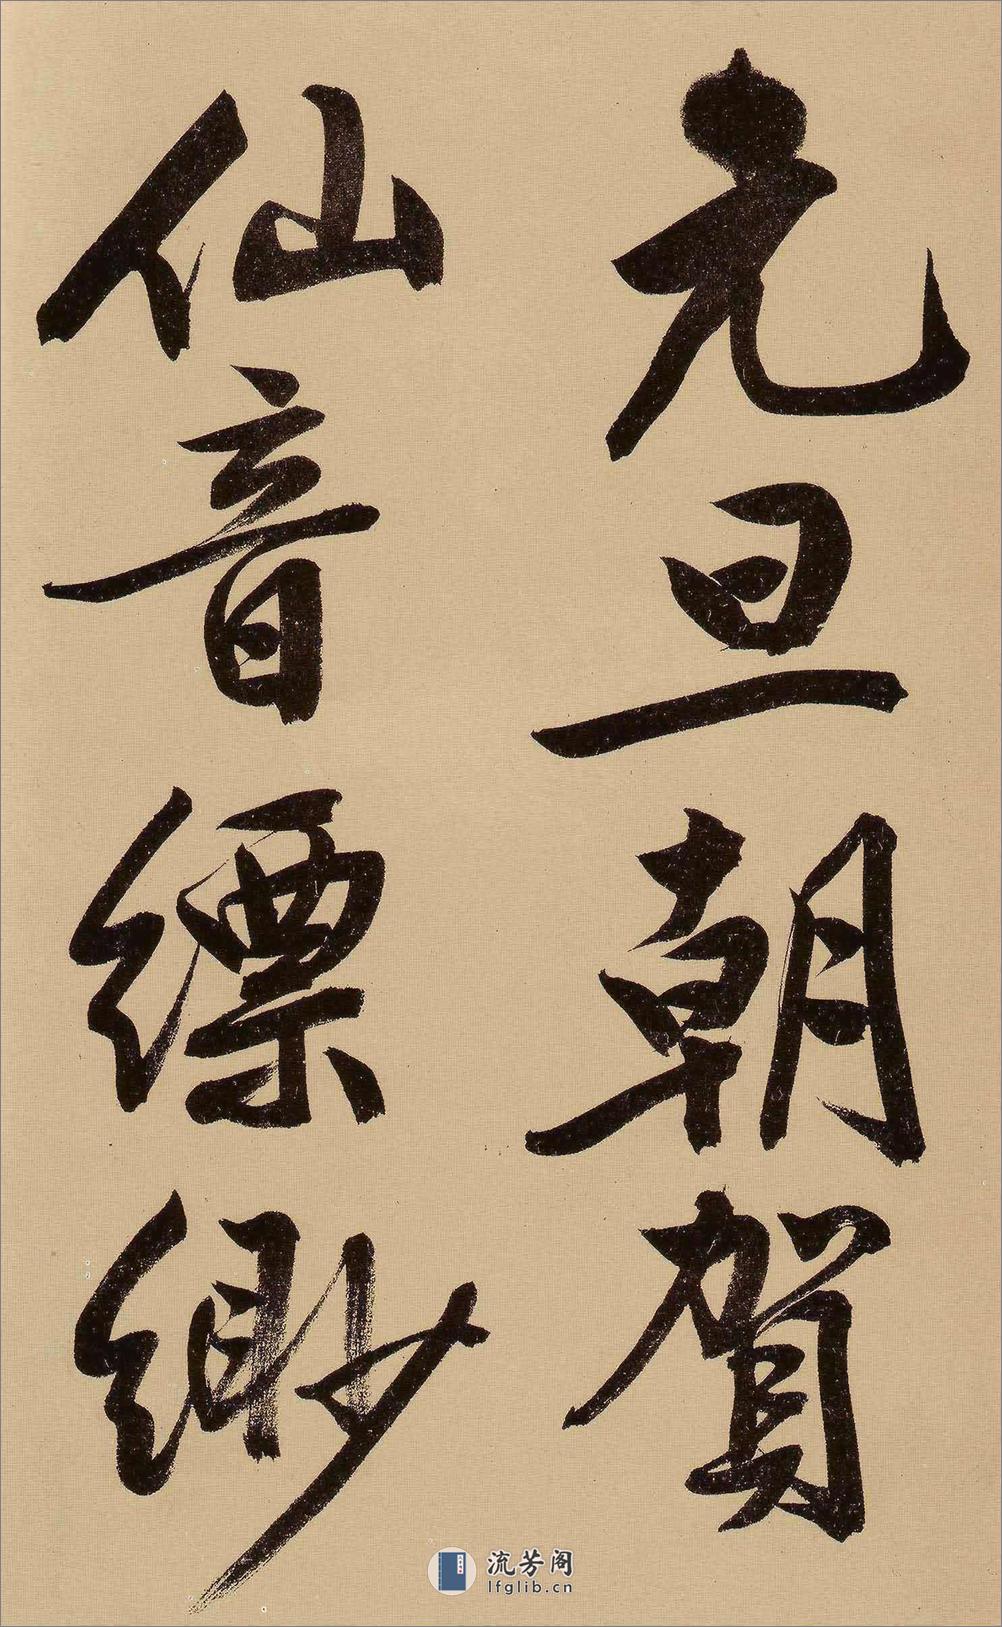 元旦朝賀
仙音縹緲
流芳阁
lfglib.cn